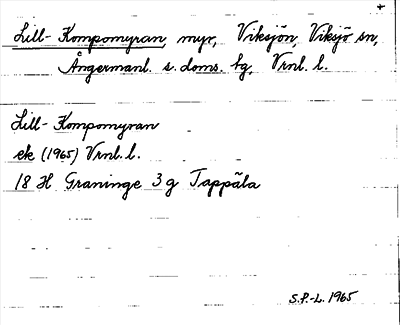 Lill-Kompomyran, myr, Viksjön, Viksjö sn,
Ångermanl. s. doms. hg, Vrnl. l.
Lill-Kompomyran
ek (1965) Vrnl. l.
18 H Graninge 3 g Tappåla
S.P.-L. 1965